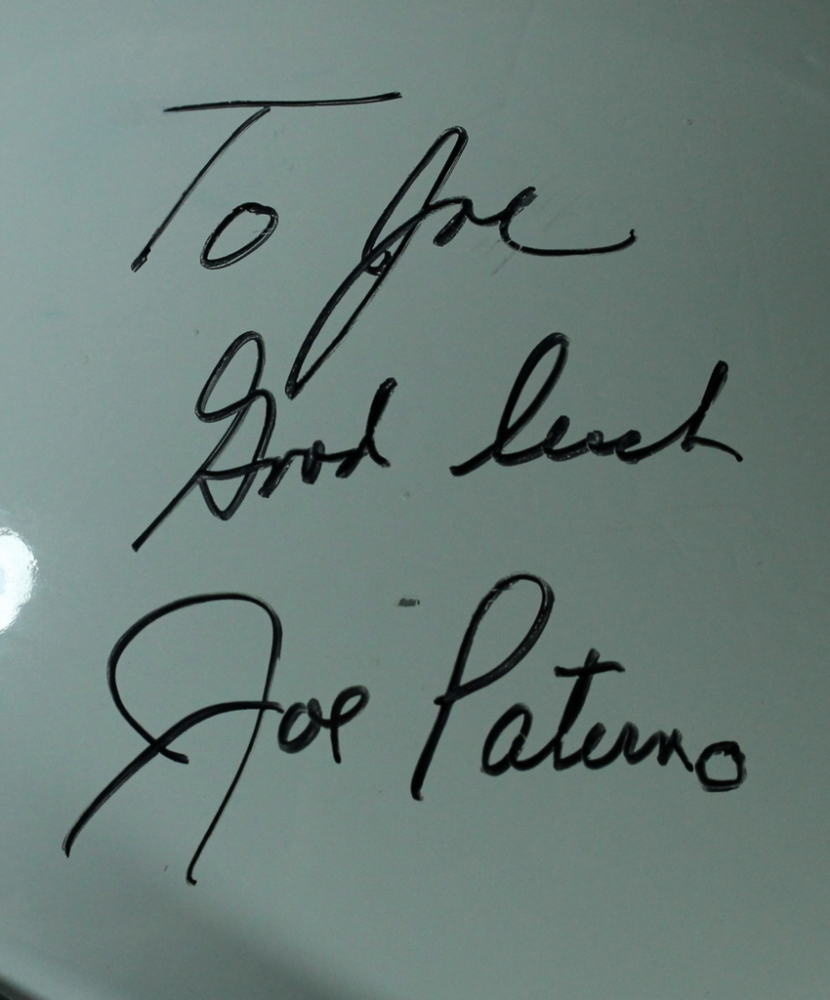 To Joe
Good luck
Joe Paterno